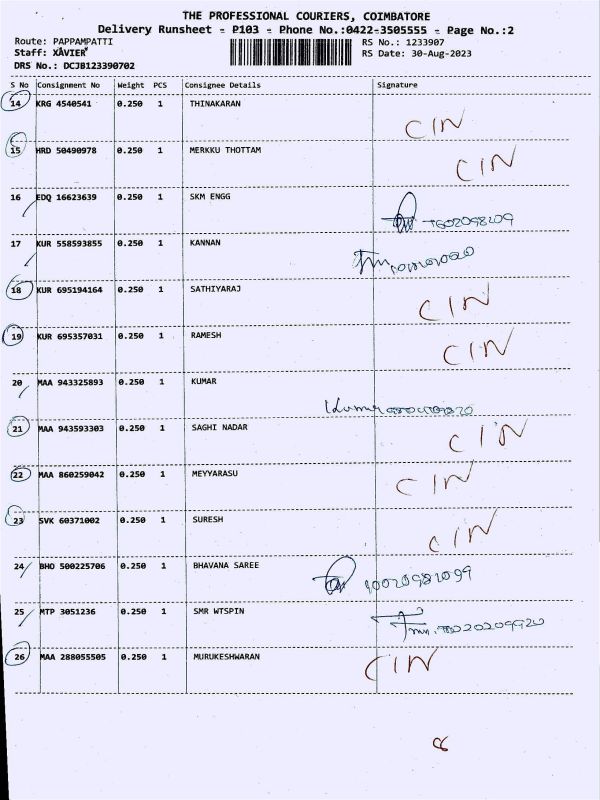 THE PROFESSIONAL COURIERS, COIMBATORE
Delivery Runsheet - P103 - Phone No.:0422-3505555 - Page No.:2
Route: PAPPAMPATTI RS No.: 1233907
Staff: XAVIER RS Date: 30-Aug-2023
DRS No.: DCJB123390702
S No Consignment No Weight PCS Consignee Details Signature
14 KRG 4540541 0.250 1 THINAKARAN
CIN
15 HRD 50490978 0.250 1 MERKKU THOTTAM
CIN
16 EDQ 16623639 0.250 1 SKM ENGG
17 KUR 558593855 0.250 1 KANNAN
18 KUR 695194164 0.250 1 SATHIYARAJ
CIN
19 KUR 695357031 0.250 1 RAMESH
CIN
20 MAA 943325893 0.250 1 KUMAR
Kumar
21 MAA 943593303 0.250 1 SAGHI NADAR
CIN
22 MAA 860259042 0.250 1 MEYYARASU
CIN
23 SVK 60371002 0.250 1 SURESH
CIN
24 BHO 500225706 0.250 1 BHAVANA SAREE
25 MTP 3051236 0.250 1 SMR WTSPIN
26 MAA 288055505 0.250 1 MURUKESHWARAN
CIN
8